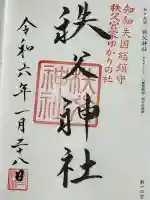 知知夫国総鎮守
秩父宮家ゆかりの社
秩父神社
秩父神社
令和六年一月二八日
秩父神社